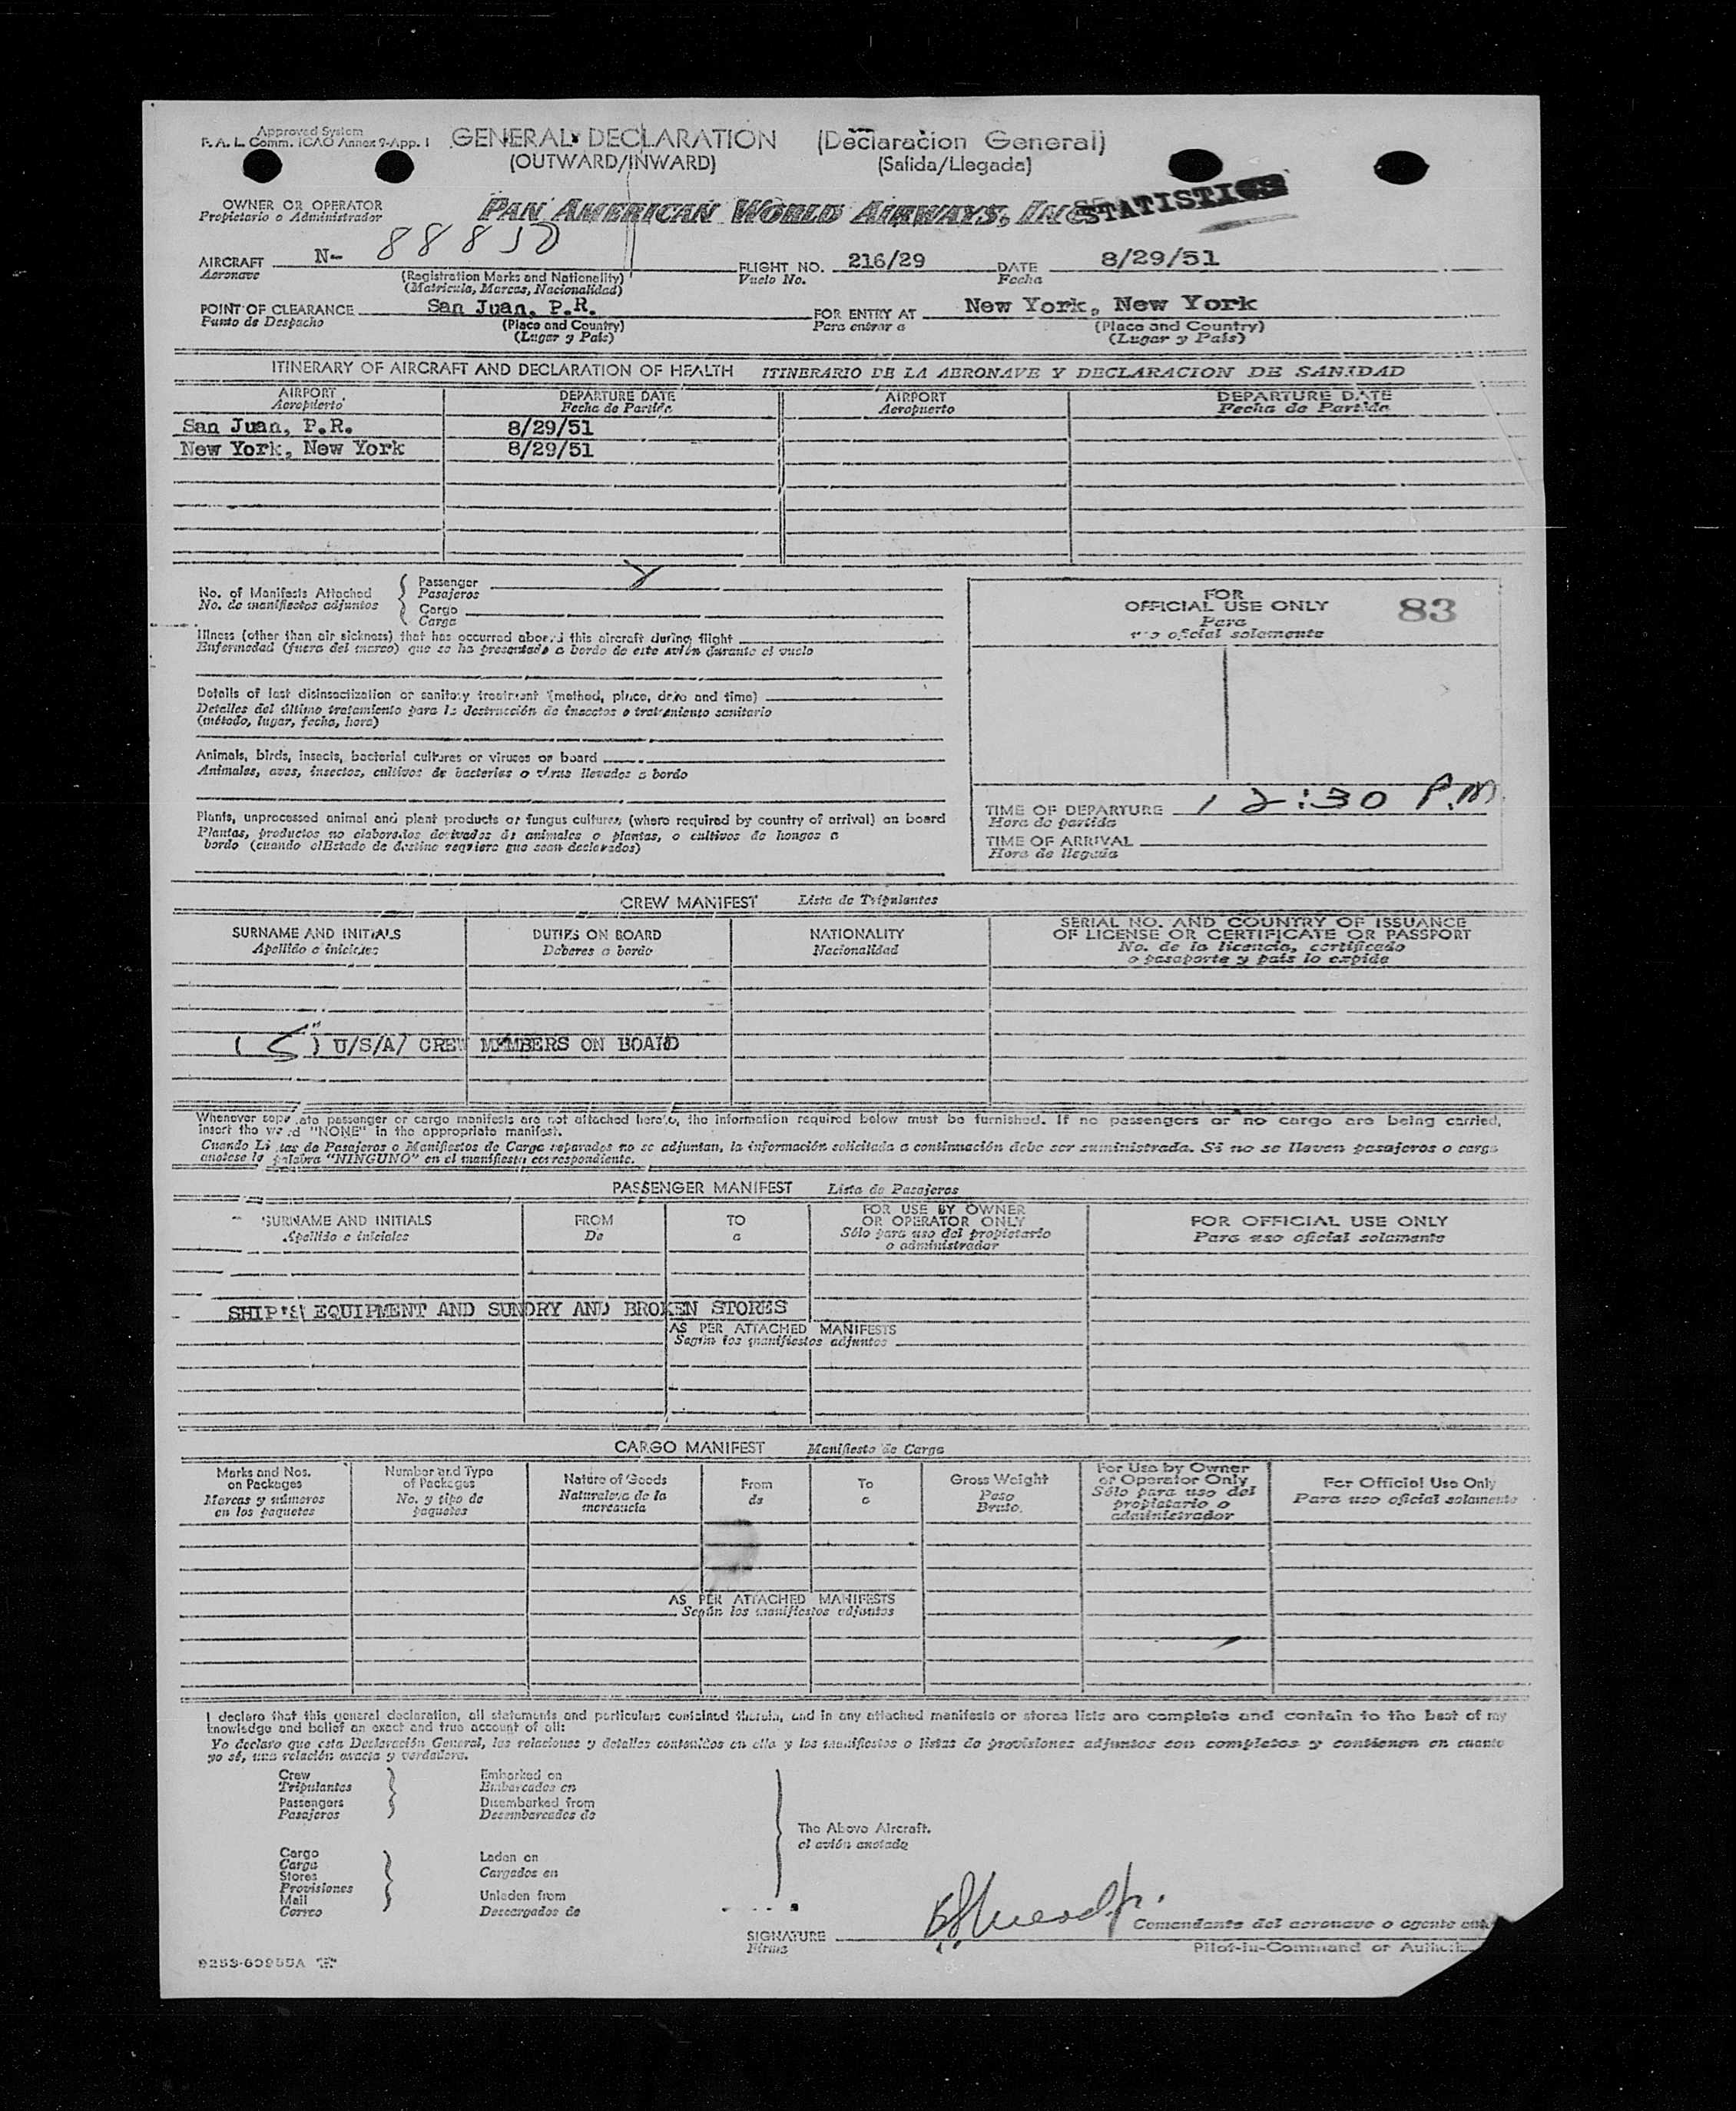 Approved System
F. A. L. Comm. ICAO Annex 9-App. 1
GENERAL DECLARATION (Declaracion General)
(OUTWARD/INWARD) (Salida/Llegada)
OWNER OR OPERATOR
Propietario o Administrador
PAN AMERICAN WORLD AIRWAYS, INC.
STATISTICS
AIRCRAFT N-
Aeronave
(Registration Marks and Nationality)
(Matricula, Marcas, Nacionalidad)
FLIGHT NO. 216/29
Vuelo No.
DATE 8/29/51
Fecha
POINT OF CLEARANCE San Juan, P.R.
Punto de Despacho
(Place and Country)
(Lugar y País)
FOR ENTRY AT New York, New York
Para entrar a
(Place and Country)
(Lugar y País)
ITINERARY OF AIRCRAFT AND DECLARATION OF HEALTH ITINERARIO DE LA AERONAVE Y DECLARACION DE SANIDAD
AIRPORT DEPARTURE DATE AIRPORT DEPARTURE DATE
Aeropuerto Fecha de Partida Aeropuerto Fecha de Partida
San Juan, P.R. 8/29/51
New York, New York 8/29/51
No. of Manifests Attached
No. de manifiestos adjuntos
Passenger
Pasajeros
Cargo
Carga
Illness (other than air sickness) that has occurred aboard this aircraft during flight
Enfermedad (fuera del mareo) que se ha presentado a bordo de este avión durante el vuelo
Details of last disinsectization or sanitary treatment (method, place, date and time)
Detalles del último tratamiento para la destrucción de insectos o tratamiento sanitario
(método, lugar, fecha, hora)
Animals, birds, insects, bacterial cultures or viruses on board
Animales, aves, insectos, cultivos de bacterias o virus llevados a bordo
Plants, unprocessed animal and plant products or fungus cultures (where required by country of arrival) on board
Plantas, productos no elaborados derivados de animales o plantas, o cultivos de hongos a
bordo (cuando el Estado de destino requiere que sean declarados)
FOR
OFFICIAL USE ONLY 83
Para
uso oficial solamente
TIME OF DEPARTURE 12:30 P.M.
Hora de partida
TIME OF ARRIVAL
Hora de llegada
CREW MANIFEST Lista de Tripulantes
SURNAME AND INITIALS DUTIES ON BOARD NATIONALITY SERIAL NO. AND COUNTRY OF ISSUANCE
OF LICENSE OR CERTIFICATE OR PASSPORT
Apellido e iniciales Deberes a bordo Nacionalidad No. de la licencia, certificado
o pasaporte y país lo expide
( 5 ) U/S/A/ CREW MEMBERS ON BOARD
Whenever separate passenger or cargo manifests are not attached hereto, the information required below must be furnished. If no passengers or no cargo are being carried,
insert the word "NONE" in the appropriate manifest.
Cuando Listas de Pasajeros o Manifiestos de Carga separados no se adjuntan, la información solicitada a continuación debe ser suministrada. Si no se llevan pasajeros o carga
anotese la palabra "NINGUNO" en el manifiesto correspondiente.
PASSENGER MANIFEST Lista de Pasajeros
SURNAME AND INITIALS FROM TO FOR USE BY OWNER
OR OPERATOR ONLY FOR OFFICIAL USE ONLY
Apellido e iniciales De a Sólo para uso del propietario
o administrador Para uso oficial solamente
SHIP'S EQUIPMENT AND SUNDRY AND BROKEN STORES
AS PER ATTACHED MANIFESTS
Según los manifiestos adjuntos
CARGO MANIFEST Manifiesto de Carga
Marks and Nos.
on Packages
Marcas y números
en los paquetes
Number and Type
of Packages
No. y tipo de
paquetes
Nature of Goods
Naturaleza de la
mercancia
From
de
To
a
Gross Weight
Peso
Bruto.
For Use by Owner
or Operator Only
Sólo para uso del
propietario o
administrador
For Official Use Only
Para uso oficial solamente
AS PER ATTACHED MANIFESTS
Según los manifiestos adjuntos
I declare that this general declaration, all statements and particulars contained therein, and in any attached manifests or stores lists are complete and contain to the best of my
knowledge and belief an exact and true account of all:
Yo declaro que esta Declaración General, las relaciones y detalles contenidos en ella y los manifiestos o listas de provisiones adjuntos son completos y contienen en cuanto
yo sé, una relación exacta y verdadera.
Crew
Tripulantes
Passengers
Pasajeros
Embarked on
Embarcados en
Disembarked from
Desembarcados de
Cargo
Carga
Stores
Provisiones
Mail
Correo
Laden on
Cargados en
Unladen from
Descargados de
The Above Aircraft.
el avión anotado
SIGNATURE
Firma
Comandante del aeronave o agente
Pilot-in-Command or